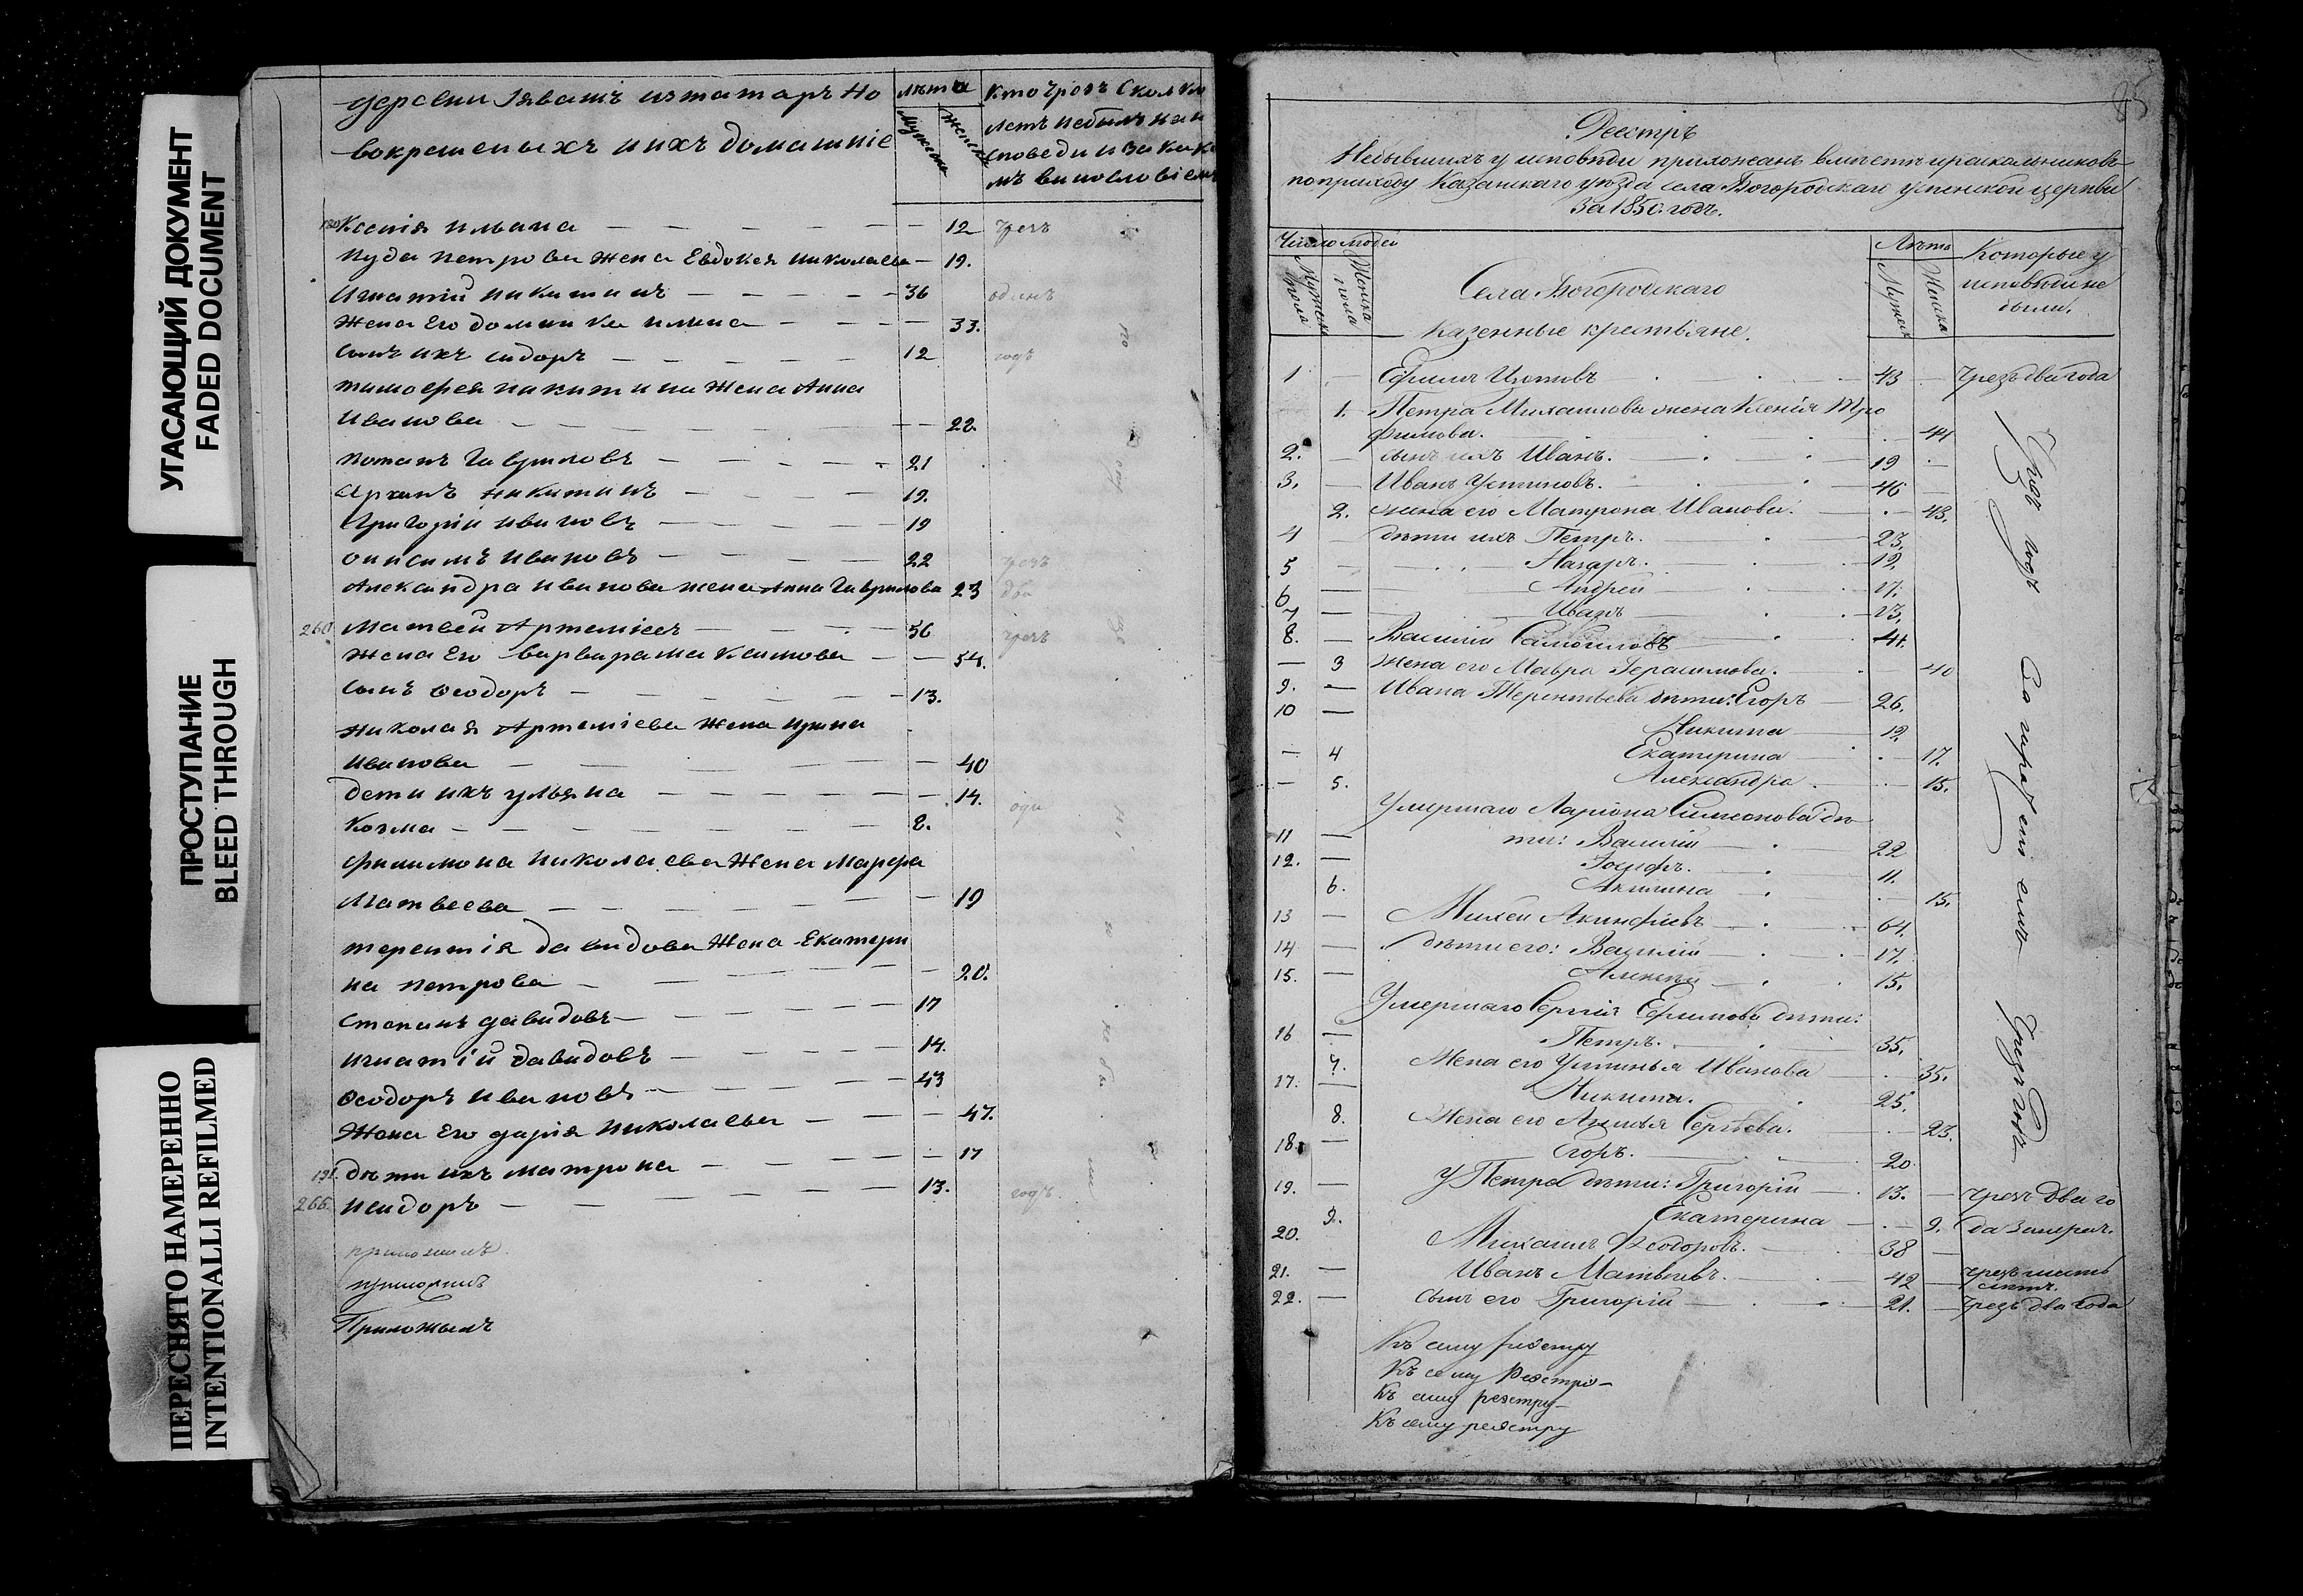 УГАСАЮЩИЙ ДОКУМЕНТ
FADED DOCUMENT
ПРОСТУПАНИЕ
BLEED THROUGH
ПЕРЕСНЯТО НАМЕРЕННО
INTENTIONALLI REFILMED
деревни изтатаръ но
вокрещеныхъ иихъ домашніе
лѣта
Мужска
Женска
кто чрезъ Сколко
летъ небылъ наи
споведи изакаки
мъ винословіемъ
130 Ксенія ильина 12 чрезъ
иуда петрова жена Евдокея николаева 19.
игнатій никитинъ 36 одинъ
жена Его домника илина 33.
сынъ ихъ сидоръ 12 годъ
тимофея никитина жена Анна
иванова 22.
потапъ гавриловъ 21
архипъ никитинъ 19.
Григорій ивановъ 19
онисимъ ивановъ 22 чрезъ
Александра иванова жена Анна гаврилова 23 два
260 матвей Артемиевъ 56 чрезъ
жена Его варвара максимова 54.
сынъ ѳеодоръ 13.
николая Артеміева жена ирина
иванова 40
дети ихъ ульяна 14. оди
козма 2.
филимона николаева жена Марфа
матвеева 19
терентія давидова жена Екатери
на петрова 20.
степанъ давидовъ 17
игнатій давидовъ 14.
ѳеодоръ ивановъ 43
жена Его дарія николаева 47.
131. дѣти ихъ матрона 17
266. исидоръ 13. годъ
приложилъ
приложилъ
Приложылъ
85
Реестръ
Небывшихъ у исповѣди прихожанъ вмѣсте ираскольниковъ
поприходу Казанскаго уѣзда села Богородскаго успенской церкви
За 1850. годъ.
Число людей
Мужска пола
Женска пола
Села Богородскаго
казенные крестьяне.
Лѣта
Мужск
Женска
Которые у
исповѣди не
были.
1 Ефимъ 43 Чрезъ два года
1. Петра Михаилова жена Ксенія Тро
фимова. 44
2. сынъ ихъ Иванъ. 19
3. Иванъ Устиновъ. 46
2. жена его Матрона Иванова. 43.
4 дѣти ихъ Петръ. 23.
5 Назаръ. 19.
6 Андрей 17.
7 Иванъ 13.
8. Василій Самойловъ 41.
3 жена его Мавра Герасимова. 40
9. Ивана Терентьева дѣти: Егоръ 26.
10 Никита 12.
4 Екатерина 17.
5. Александра 15.
Умершаго Ларіона Симеонова дѣ
11 ти: Василій 22
12. Іосифъ. 11.
6. Акилина 15.
13 Михей Акинфіевъ 64.
14 дѣти его: Василій 17.
15. Алексѣй 15.
Умершаго Сергія Ефимова дѣти:
16 Петръ. 35.
7. Жена его Устинья Иванова 35.
17. Никита. 25.
8. Жена его Аксинья Сергѣева. 23.
18. Егоръ. 20
19. У Петра дѣти: Григорій 13. чрезъ два го
9. Екатерина 9. да
20. Михаилъ Ѳеодоровъ. 38
21. Иванъ Матвѣевъ. 42 чрезъ шесть
лѣтъ.
22. Сынъ его Григорій 21. Чрезъ два года
Чрезъ годъ
Чрезъ годъ
Къ сему реестру
Къ сему Реестру
Къ сему реестру
Къ сему реестру